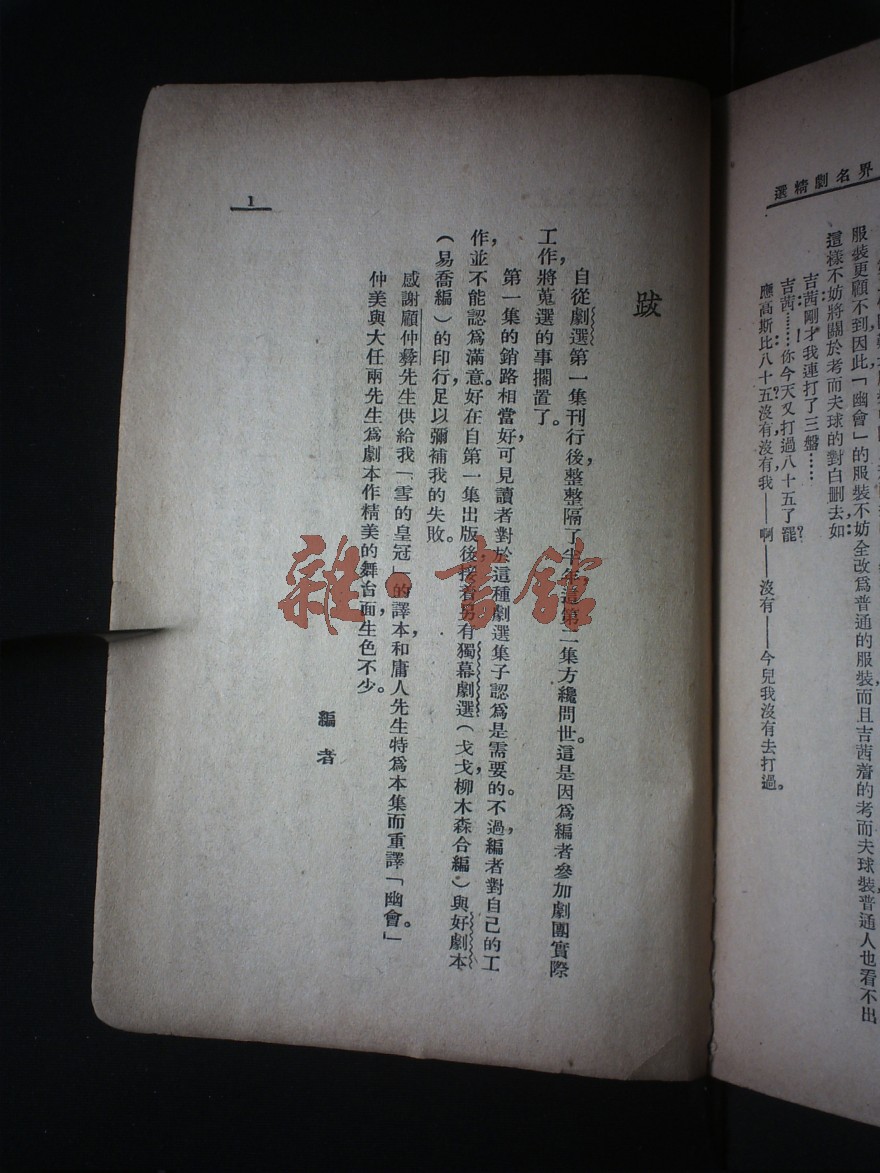 界名劇精選
服裝更顧不到因此「幽會」的服裝不妨全改爲普通的服裝而且吉茜着的考而夫球裝普通人也看不出
這樣不妨將關於考而夫球的對白删去如：
吉茜：剛才我連打了三盤……
吉茜……你今天又打過八十五了罷？
應高斯比：八十五？沒有，沒有，我——啊——沒有——今兒我沒有去打過。
跋
自從劇選第一集刊行後，整整隔了半年這第二集方纔問世。這是因爲編者參加劇團實際
工作，將蒐選的事擱置了。
第一集的銷路相當好，可見讀者對於這種劇選集子認爲是需要的。不過，編者對自己的工
作，並不能認爲滿意。好在自第一集出版後，接着另有獨幕劇選（戈戈，柳木森合編）與好劇本
（易喬編）的印行，足以彌補我的失敗。
感謝顧仲彝先生供給我「雪的皇冠」的譯本，和庸人先生特爲本集而重譯「幽會。」
仲美與大任兩先生爲劇本作精美的舞台面，生色不少。
編者
1
雜·書館